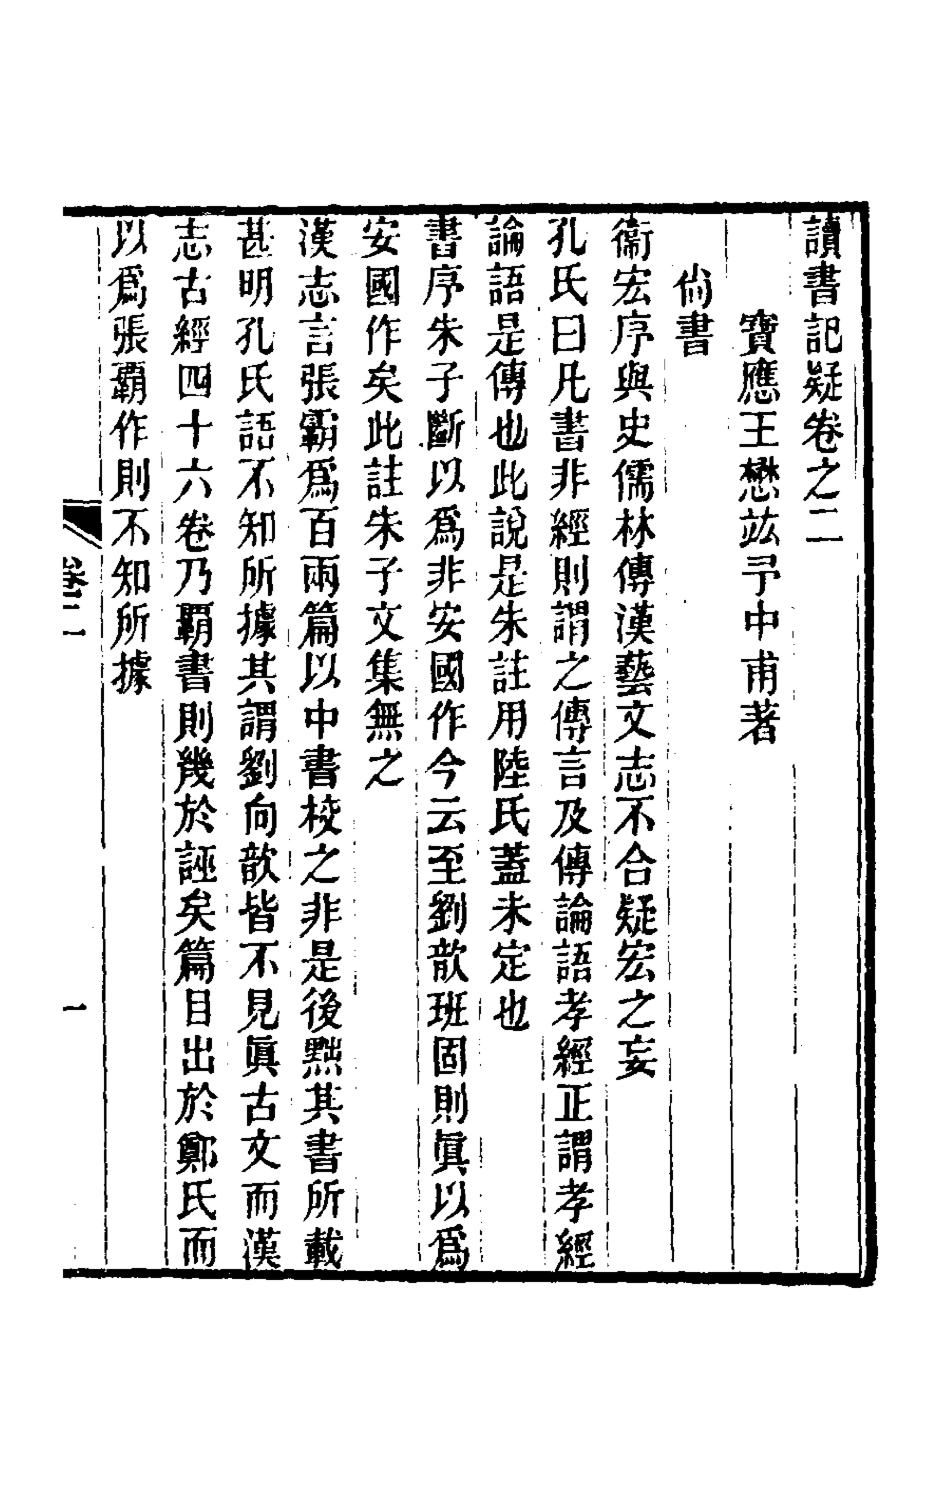 讀書記疑卷之二
寶應王懋竑予中甫著
尚書
衞宏序與史儒林傳漢藝文志不合疑宏之妄
孔氏曰凡書非經則謂之傳言及傳論語孝經正謂孝經
論語是傳也此說是朱註用陸氏蓋未定也
書序朱子斷以爲非安國作今云至劉歆班固則眞以爲
安國作矣此註朱子文集無之
漢志言張霸爲百兩篇以中書校之非是後黜其書所載
甚明孔氏語不知所據其謂劉向歆皆不見眞古文而漢
志古經四十六卷乃覇書則幾於誣矣篇目出於鄭氏而
以爲張覇作則不知所據
卷二
一